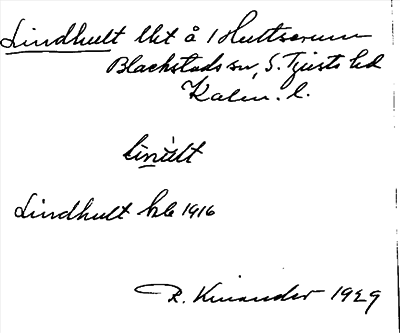 Lindhult lht å 1 Hultserum
Blackstads sn, S. Tjusts hd
Kalm. l.
linụlt
Lindhult hb 1916
R. Kinander 1929